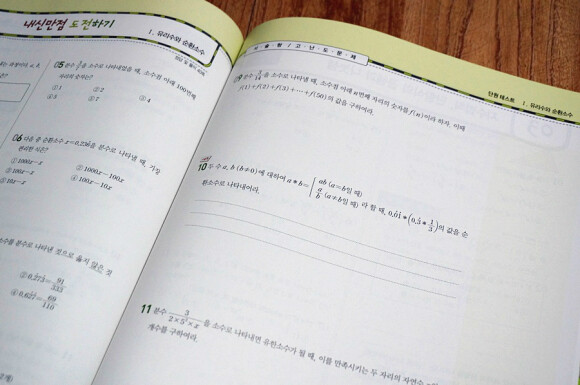 내신만점 도전하기
1. 유리수와 순환소수
05 분수
을 소수로 나타내었을 때, 소수점 아래 100번째
자리의 숫자는?
① 1 ② 2 ③ 4
④ 5 ⑤ 7
06 다음 중 순환소수 x=0.236을 분수로 나타낼 때, 가장
편리한 식은?
① 1000x-x ② 1000x-100x
③ 100x-x ④ 100x-10x
⑤ 10x-x
분수로 나타낸 것으로 옳지 않은 것
② 0.273=91/333
④ 0.627=69/110
서술형/고난도문제
단원 테스트 1. 유리수와 순환소수
09
을 소수로 나타낼 때, 소수점 아래 n번째 자리의 숫자를 f(n)이라 하자. 이때
f(1)+f(2)+f(3)+⋯+f(50)의 값을 구하여라.
10 두 수 a, b (b≠0)에 대하여 a*b= { ab (a=b일 때) a/b (a≠b일 때) 라 할 때, 0.01*(0.3*1/3)의 값을 순
환소수로 나타내어라.
11 분수 3/(2×5²×x)을 소수로 나타내면 유한소수가 될 때, 이를 만족시키는 두 자리의 자연수
개수를 구하여라.